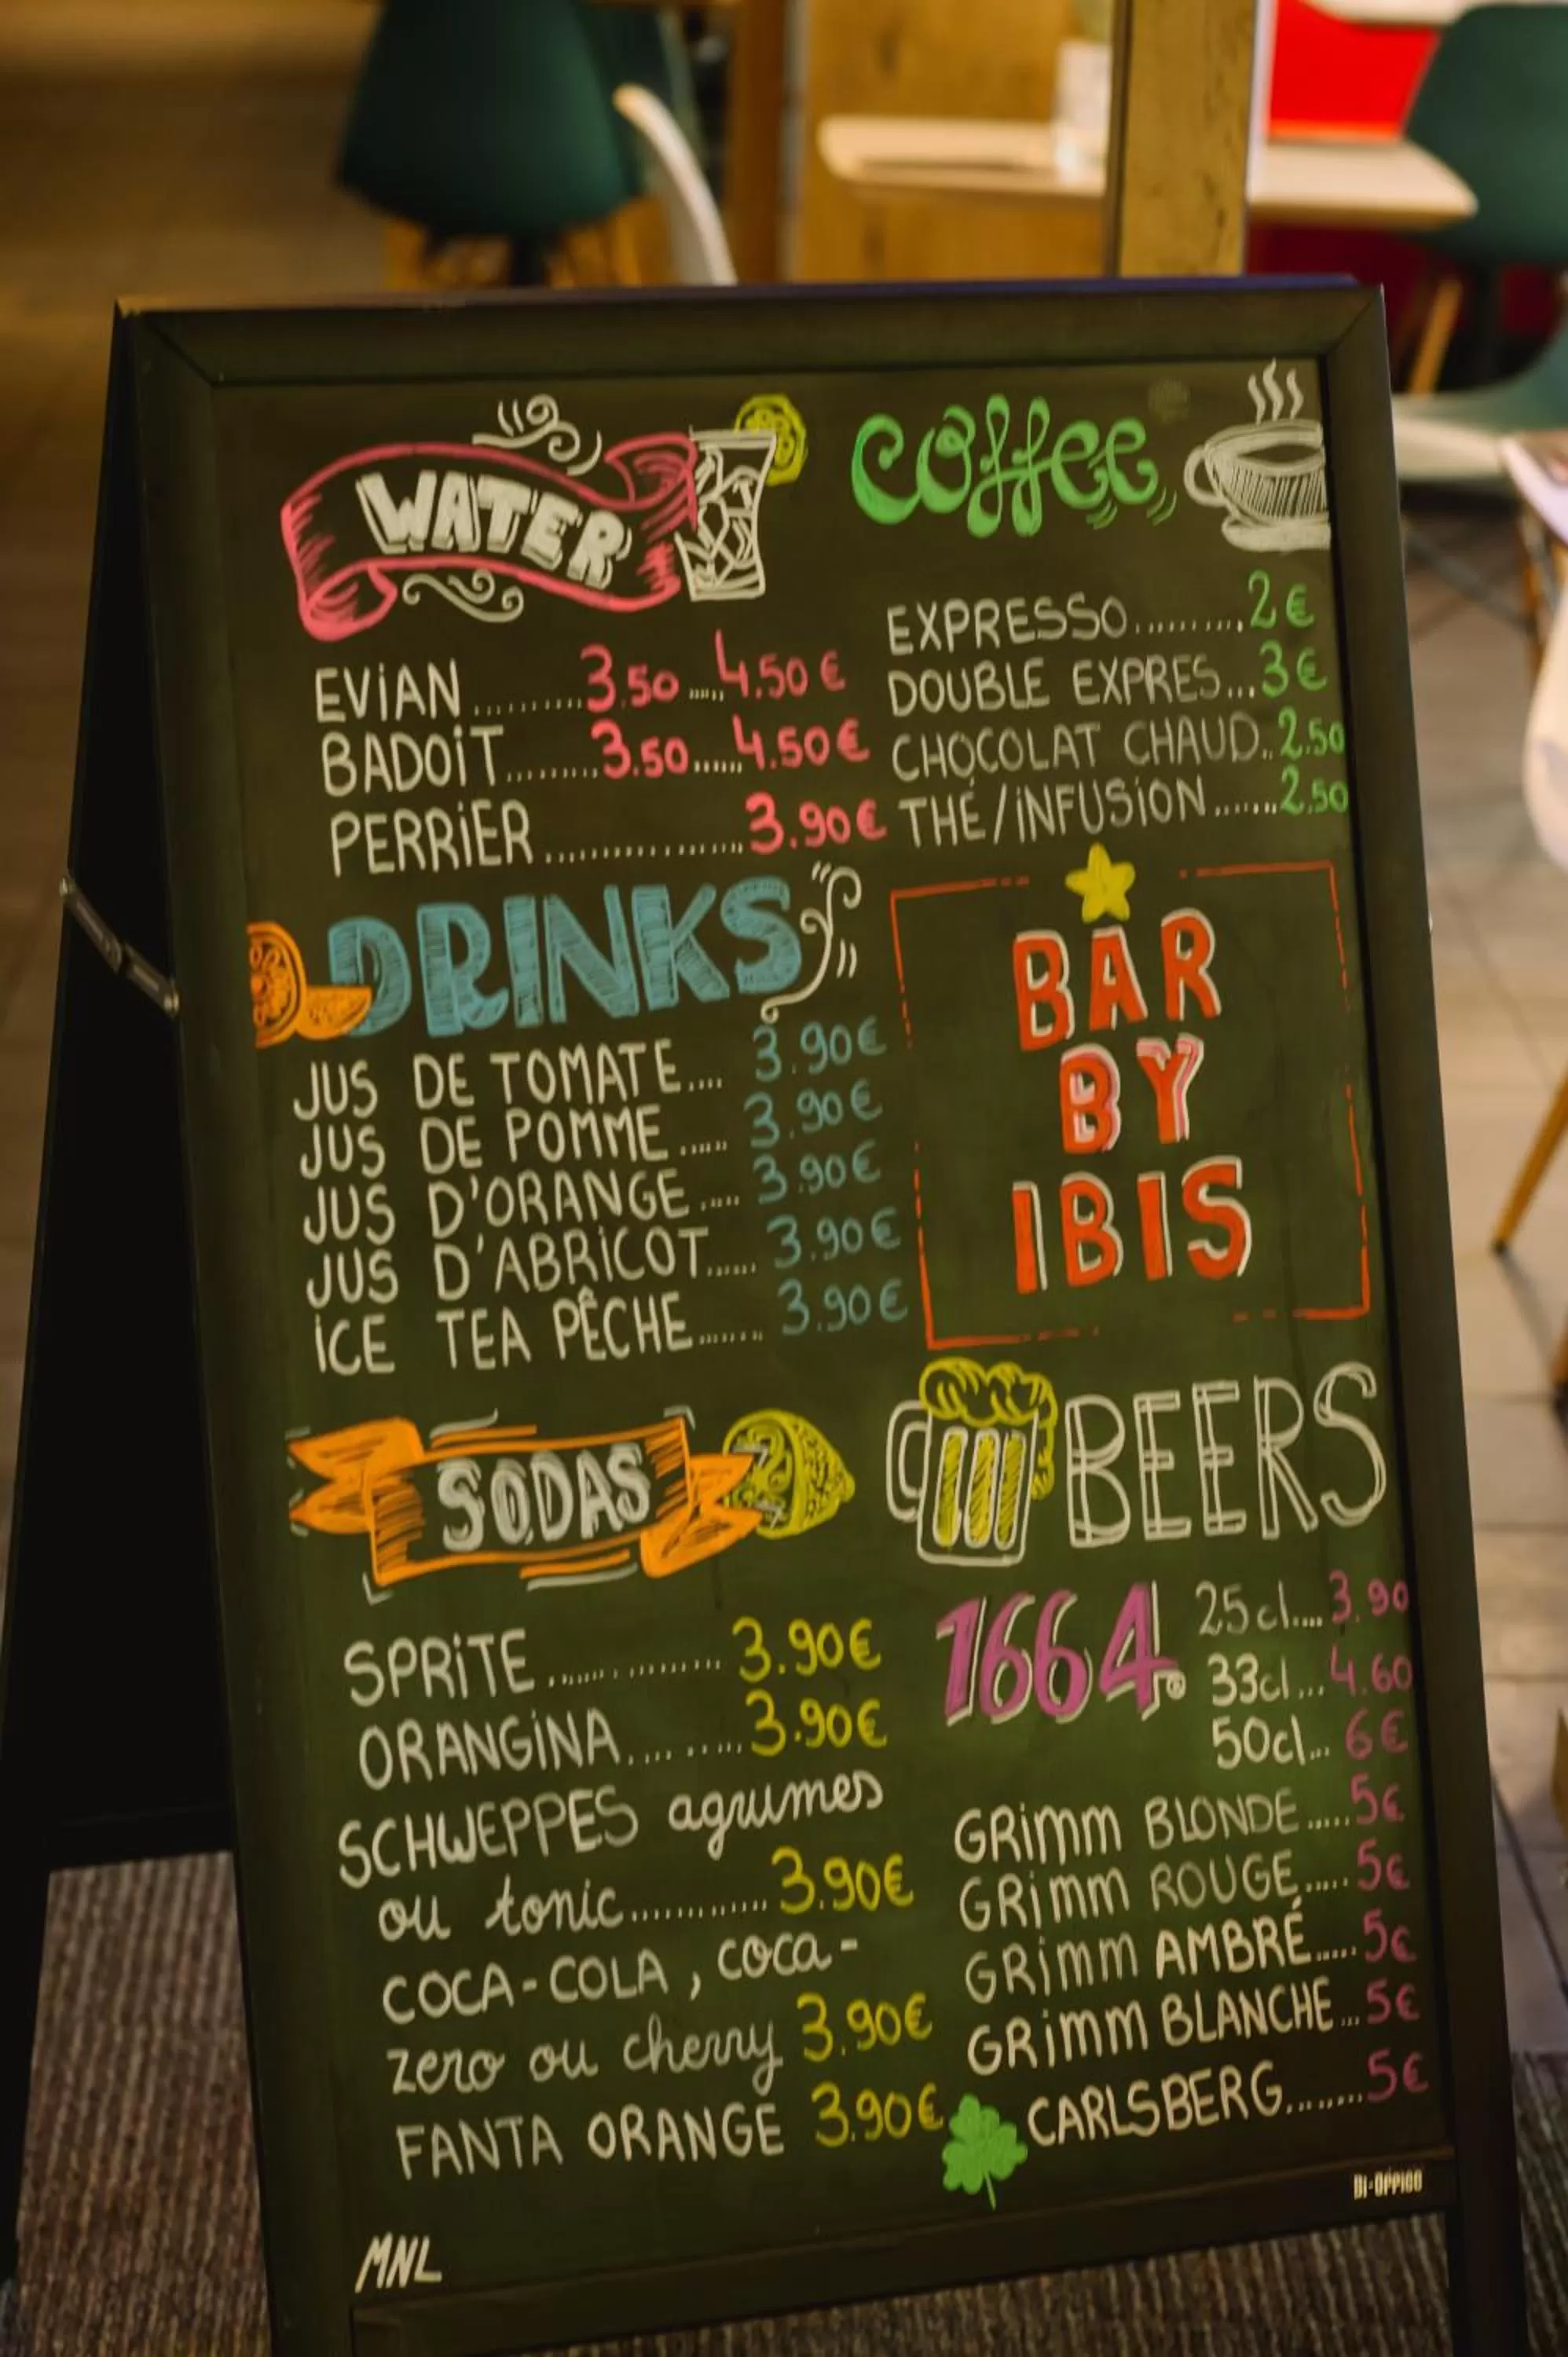 WATER
EVIAN..........3.50......4.50€
BADOIT.........3.50......4.50€
PERRIER..................3.90€
coffee
EXPRESSO..........2€
DOUBLE EXPRES...3€
CHOCOLAT CHAUD..2.50
THÉ/INFUSION.......2.50
DRINKS
JUS DE TOMATE.... 3.90€
JUS DE POMME...... 3.90€
JUS D'ORANGE..... 3.90€
JUS D'ABRICOT...... 3.90€
ICE TEA PÊCHE....... 3.90€
BAR
BY
IBIS
SODAS
SPRITE.................. 3.90€
ORANGINA......... 3.90€
SCHWEPPES agrumes
ou tonic............ 3.90€
COCA-COLA, coca-
zero ou cherry 3.90€
FANTA ORANGE 3.90€
BEERS
1664. 25cl....3.90
33cl...4.60
50cl...6€
GRIMM BLONDE.....5€
GRIMM ROUGE.....5€
GRIMM AMBRÉ.....5€
GRIMM BLANCHE...5€
CARLSBERG........5€
MNL